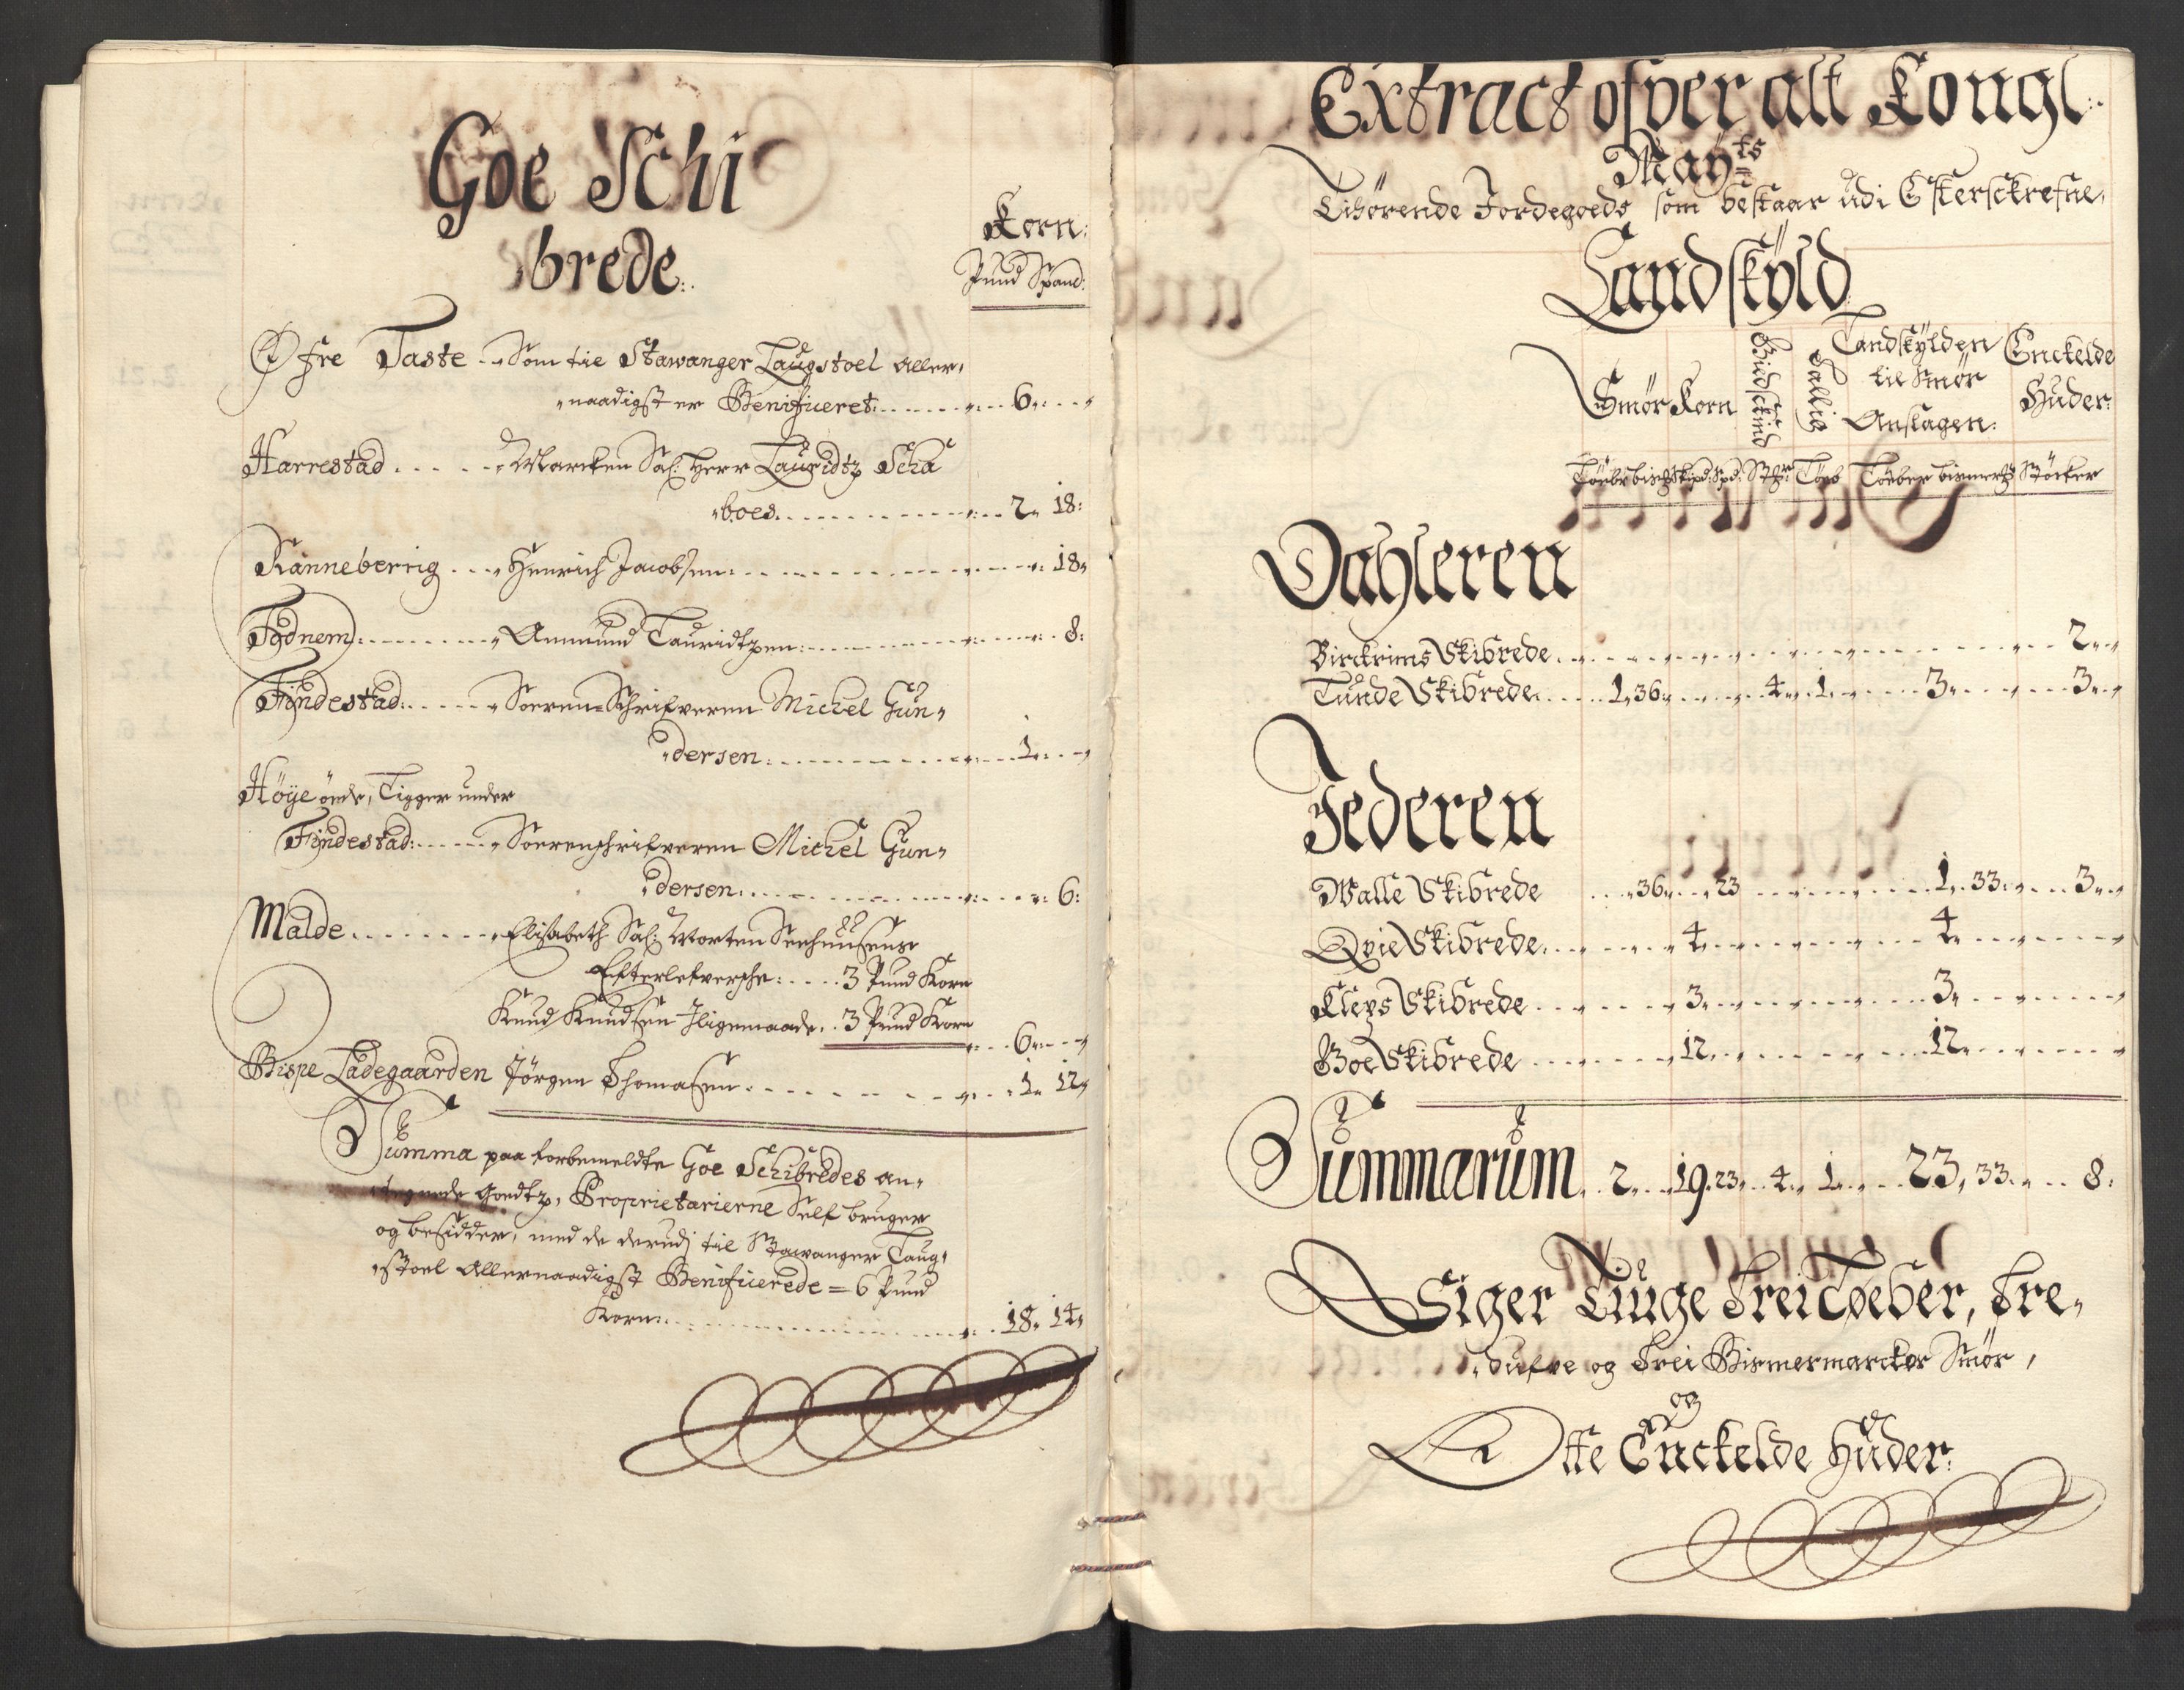 Goe Schi
brede:
Korn:
Pund Spand:
Øfre Taste - Som til Stawanger Laugstoel aller,
naadigst er Benificeret: 6
Harrestad Marcken Sal: Herr Lauridtz Scha
boes 2 18:
Ranneberrig Henrich Jacobsen: 18
Fodnem: Ammund Lauridtzen: 8:
Findestad: Soeren-Schrifveren Michel Gun,
dersen: 1
Høye øde, Ligger under
Findestad: Soerenschrifveren Michel Gun,
dersen: 6:
Malde Elisabeth Sal: Morten Seehuusens
Efterlefversche: 3 Pund Korn
Knud Knudsen 3 Pund Korn
6
Bispe Ladegaarden Jørgen Thomasen: 1 12
Summa paa forbemeldte Goe Schibredes an,
tegnede Goedtz, Proprietarierne Self bruger
og besidder, med de derudj til Stawanger Laug,
stoel Allernaadigst Benificerede = 6 Pund
Korn: 18 14
Extract ofver alt Kongl:
Mayts
Tilhørende Jordegoeds som bestaar udi Efterskrefne,
Landskyld
Smør Korn Budschind Sallig Landskylden Enckelde
til Smør Huder:
Anslagen:
Løber Spd: Løber Støcker
Dahleren
Birckrims Skibrede 2
Lunde Skibrede 1 36 4 1 3 3
Jederen
Walle Skibrede 36 23 1 33 3
Qvie Skibrede 4 4
Kleps Skibrede 3 3
Goe Skibrede 12 12
Summarum 2 19 23 4 1 23, 33 8:
Siger Tiuge Trei Løeber, Tre,
dufve og Trei Bismermarcker Smør,
og
Otte Enckelde Huder: